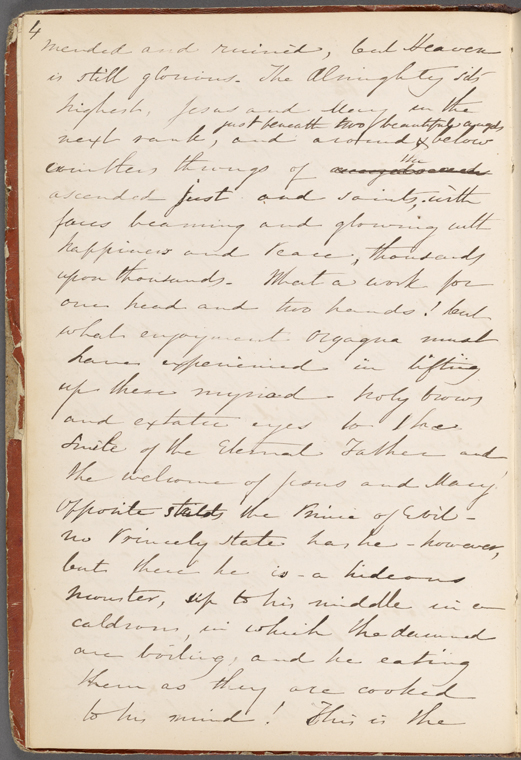 4
mended and ruined, but Heaven
is still glorious - The Almighty sits
highest, Jesus and Mary in the
just beneath two beautiful angels
next rank, and around & below
countless throngs of the
ascended just and saints, with
faces beaming and glowing with
happiness and Peace, thousands
upon thousands - What a work for
one head and two hands! but
what enjoyment Orgagna must
have experienced in lifting
up these myriad holy brows
and extatic eyes to the
Smile of the Eternal Father and
the welcome of Jesus and Mary!
Opposite the Prince of Evil -
no Princely state has he - however,
but there he is - a hideous
monster, up to his middle in a
caldron, in which the damned
are boiling, and he eating
them as they are cooked
to his mind! This is the